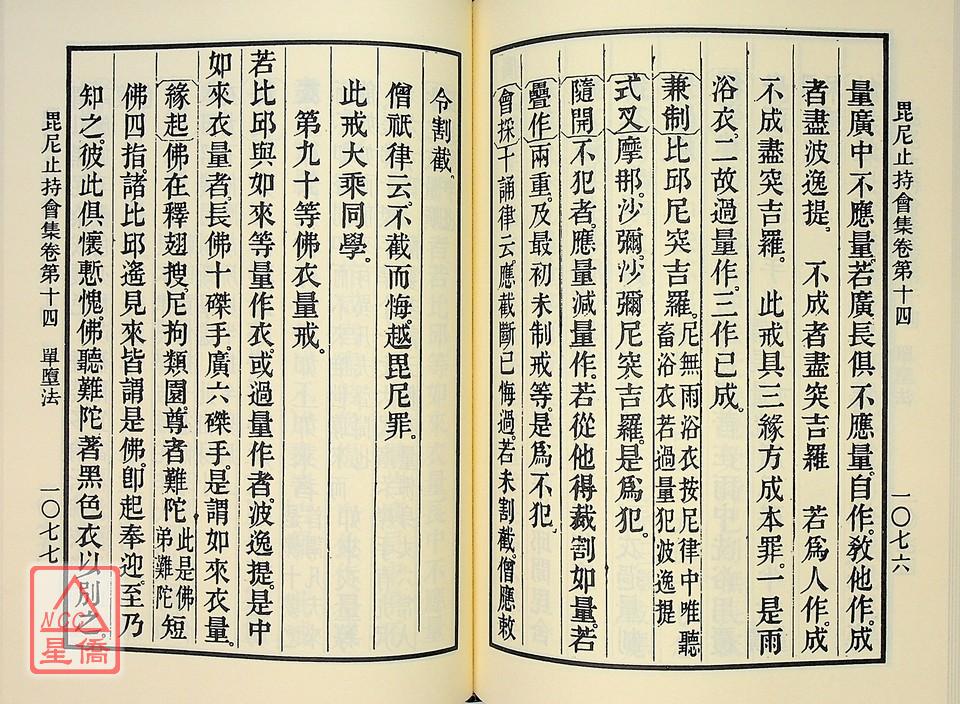 毘尼止持會集卷第十四　單墮法　一〇七六
量廣中不應量。若廣長俱不應量。自作。敎他作。成
者盡波逸提。　不成者盡突吉羅　若爲人作。成
不成盡突吉羅。　此戒具三緣方成本罪。一是雨
浴衣。二故過量作。三作已成。
兼制比邱尼突吉羅。尼無雨浴衣按尼律中唯聽畜浴衣若過量犯波逸提
式叉摩那。沙彌。沙彌尼突吉羅。是爲犯。
隨開不犯者。應量。減量作。若從他得裁割如量。若
疊作兩重。及最初未制戒等。是爲不犯。
會採十誦律云。應截斷已悔過。若未割截。僧應敕
令割截。
僧祇律云。不截而悔。越毘尼罪。
此戒大乘同學。
第九十等佛衣量戒。
若比邱與如來等量作衣。或過量作者。波逸提。是中
如來衣量者。長佛十磔手。廣六磔手。是謂如來衣量。
緣起佛在釋翅搜。尼拘類園。尊者難陀此是佛弟難陀短
佛四指。諸比邱遙見來皆謂是佛。卽起奉迎。至乃
知之。彼此俱懷慙愧。佛聽難陀著黑色衣以別之。
毘尼止持會集卷第十四　單墮法　一〇七七
NCC
星僑